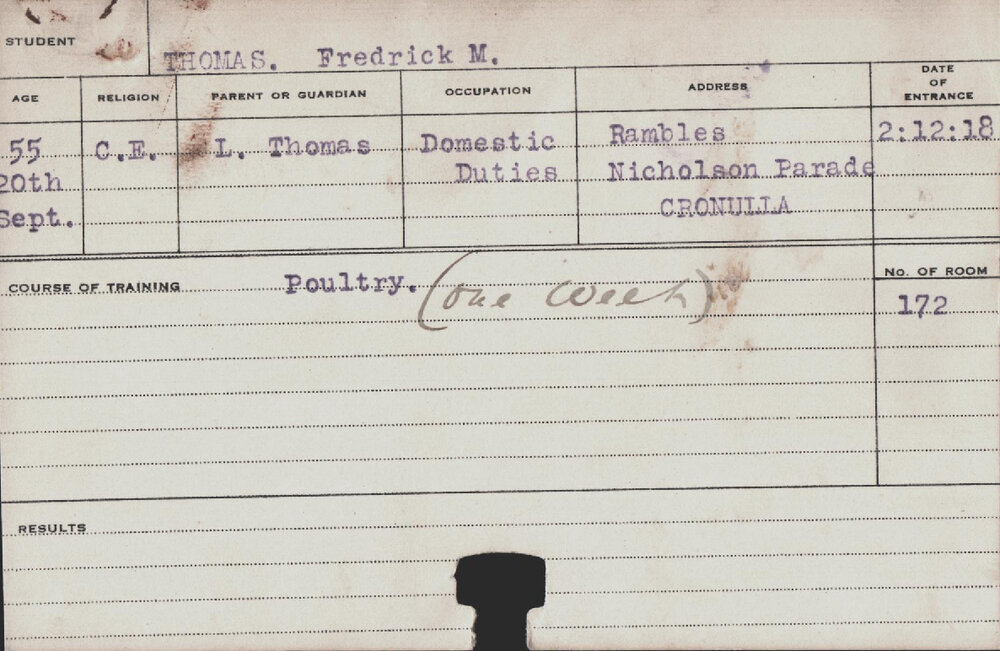 STUDENT
THOMAS. Fredrick M.
AGE RELIGION PARENT OR GUARDIAN OCCUPATION ADDRESS DATE OF ENTRANCE
55 C.E. L. Thomas Domestic Rambles 2:12:18
20th Duties Nicholson Parade
Sept. CRONULLA
COURSE OF TRAINING Poultry. (one week) No. OF ROOM
172
RESULTS